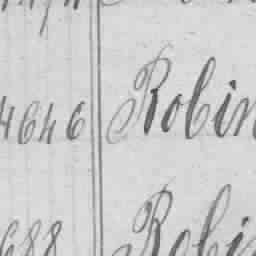 4646 Robin
688 Robin